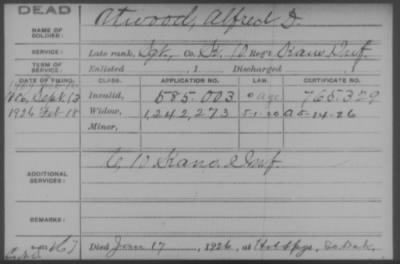 DEAD
NAME OF SOLDIER: Atwood, Alfred D.
SERVICE: Late rank, Sgt, Co. 10 Reg't Kans. Inf.
TERM OF SERVICE: Enlisted , 1 Discharged
DATE OF FILING. CLASS. APPLICATION NO. LAW. CERTIFICATE NO.
Sept. 13 Invalid, 585.003 age 765.329
1926 Feb-18 Widow, 1,242,273 5-1-20 A 5-14-26
Minor,
ADDITIONAL SERVICES: C, 10 Kans. Inf
REMARKS:
Died Jan 17, 1926, at Hot Spgs, So. Dak.